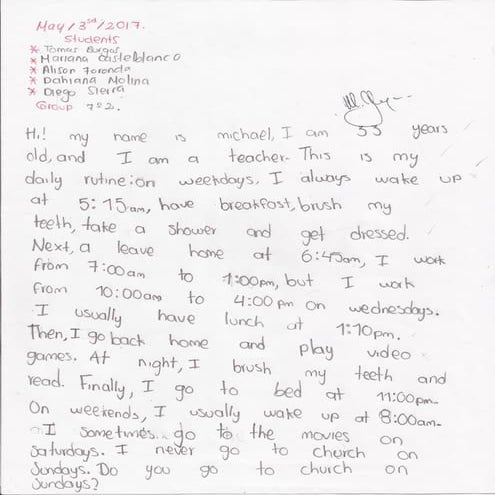 May/3rd/2017.
Students
* Tomas Burgos
* Mariana Castelblanco
* Alison Foronda
* Dahiana Molina
* Diego Sierra
Group 7º2.
Hi! my name is michael, I am 55 years
old, and I am a teacher. This is my
daily rutine: on weekdays, I always wake up
at 5:15am, have breakfast, brush my
teeth, take a shower and get dressed.
Next, a leave home at 6:45am, I work
from 7:00am to 1:00pm, but I work
from 10:00am to 4:00pm on wednesdays.
I usually have lunch at 1:10pm.
Then, I go back home and play video
games. At night, I brush my teeth and
read. Finally, I go to bed at 11:00pm.
On weekends, I usually wake up at 8:00am.
I sometimes go to the movies on
saturdays. I never go to church on
Sundays. Do you go to church on
Sundays?